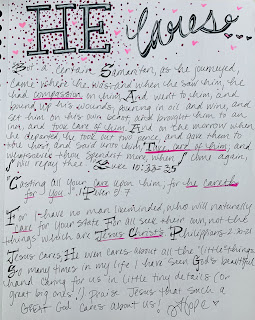 HE Cares
"But a Certain Samaritan, As he journeyed,
Came where he was: And when he saw him, he
had compassion on him, And went to him, and
bound up his wounds, pouring in oil and wine, and
set him on his own beast, and brought him to an
inn, and took care of him. And on the morrow when
he departed, he took out two pence, and gave them to
the host, and said unto him, Take care of him; and
whatsoever thou spendest more, when I come again,
I will repay thee." Luke 10:33-35
"Casting all your care upon him; for he careth
for you." I Peter 5:7
For I have no man likeminded, who will naturally
care for your state. For all seek their own, not the
things which are Jesus Christ's. Philippians 2:20-21
Jesus cares. He even cares about all the "little" things.
So many times in my life I have seen God's beautiful
hand caring for us in little tiny details (or
great big ones!) Praise Jesus that such a
GREAT God cares about us! Hope